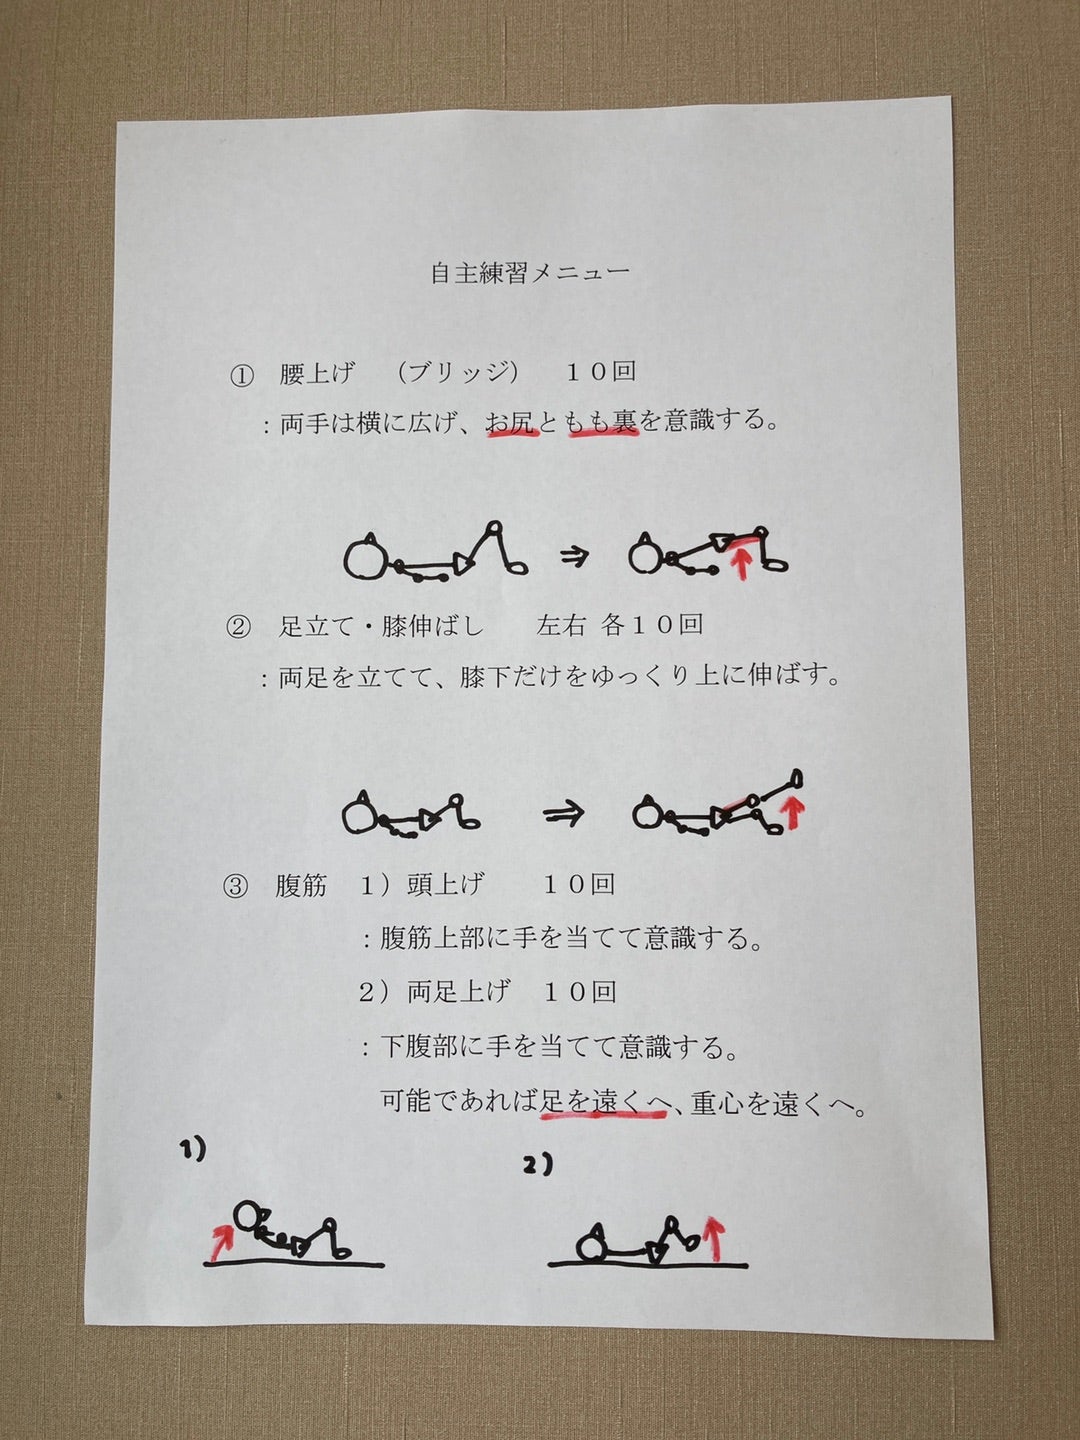 自主練習メニュー
① 腰上げ （ブリッジ） １０回
：両手は横に広げ、お尻ともも裏を意識する。
② 足立て・膝伸ばし 左右 各１０回
：両足を立てて、膝下だけをゆっくり上に伸ばす。
③ 腹筋 １）頭上げ １０回
：腹筋上部に手を当てて意識する。
２）両足上げ １０回
：下腹部に手を当てて意識する。
可能であれば足を遠くへ、重心を遠くへ。
1) 2)